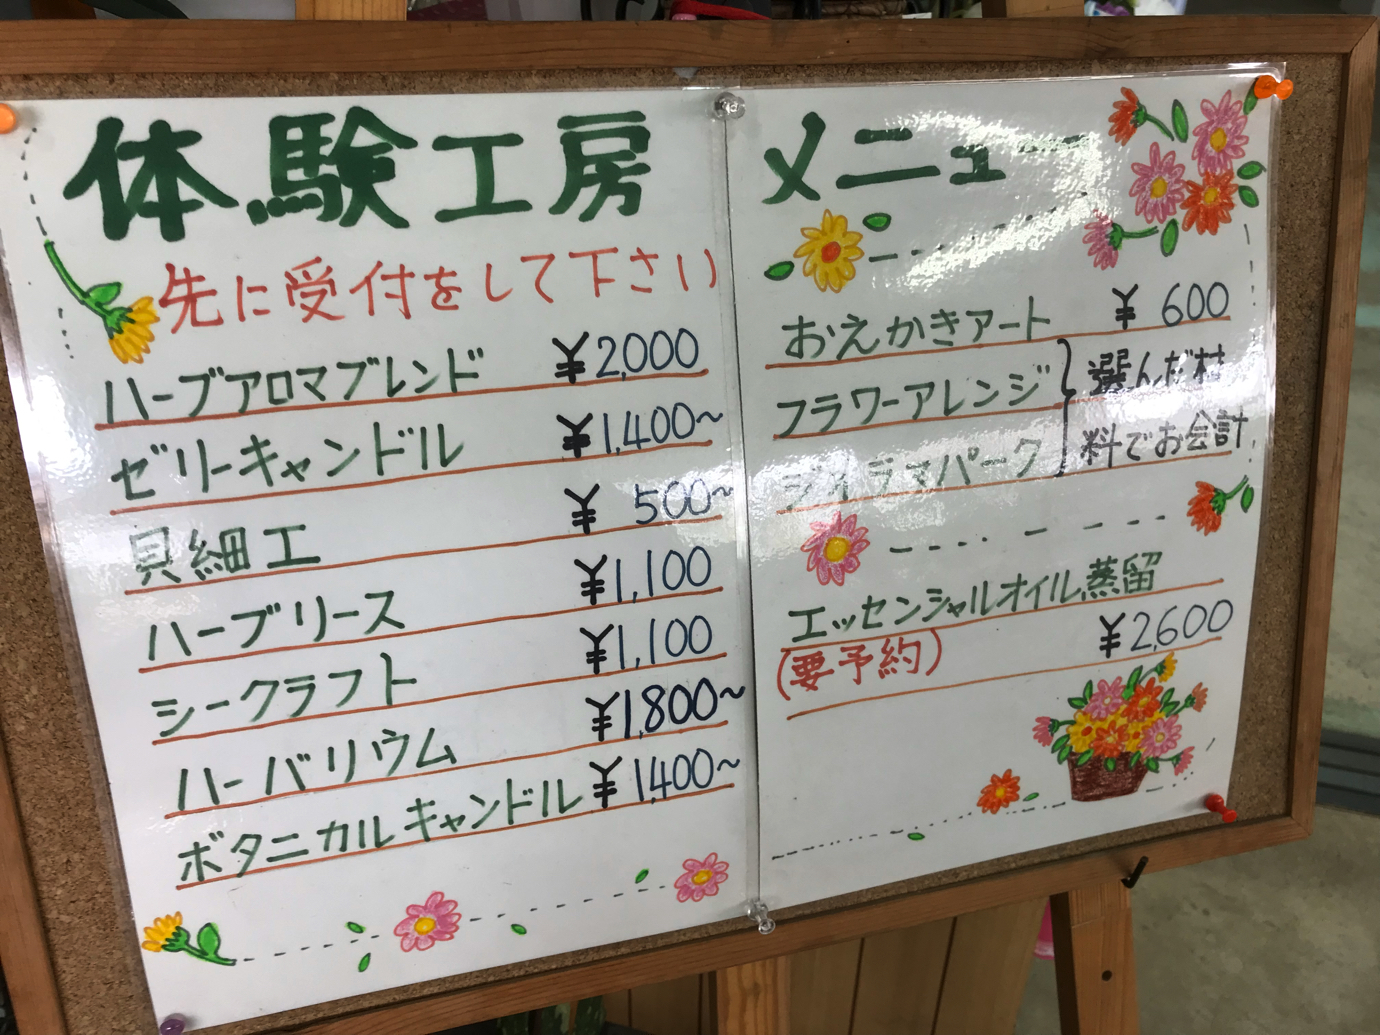 体験工房
先に受付をして下さい
ハーブアロマブレンド ¥2,000
ゼリーキャンドル ¥1,400~
貝細工 ¥500~
ハーブリース ¥1,100
シークラフト ¥1,100
ハーバリウム ¥1,800~
ボタニカルキャンドル ¥1,400~
メニュー
おえかきアート ¥600
フラワーアレンジ
ジオラマパーク
選んだ材
料でお会計
エッセンシャルオイル蒸留
(要予約) ¥2,600